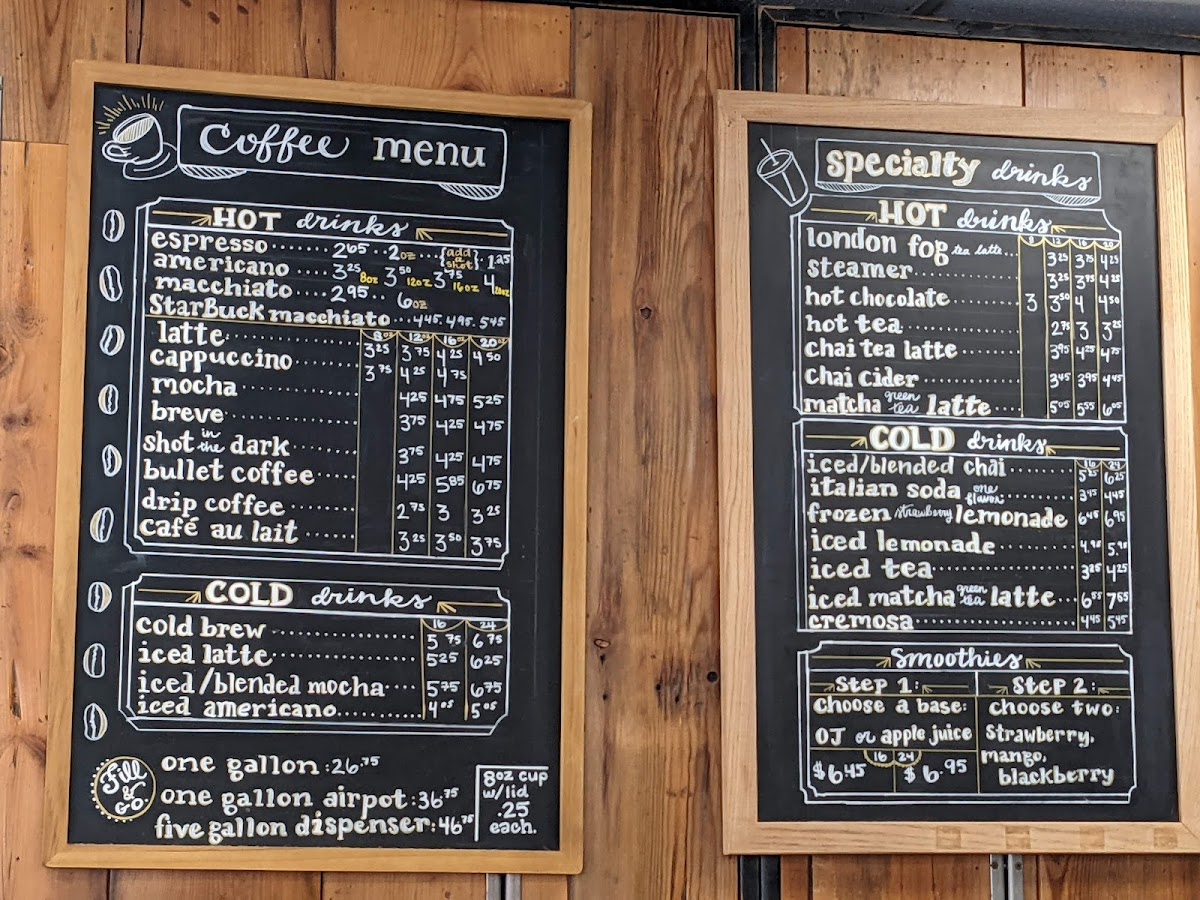 Coffee menu
HOT drinks
espresso ...... 2.65 .. 2oz ... {add a shot} . 1.25
americano .... 3.25 8oz 3.50 12oz 3.75 16oz 4 20oz
macchiato .... 2.95 .. 6oz
StarBuck macchiato ... 4.45 . 4.95 . 5.45
8oz 12oz 16oz 20oz
latte ...... 3.25 3.75 4.25 4.50
cappuccino ...... 3.75 4.25 4.75
mocha ...... 4.25 4.75 5.25
breve ...... 3.75 4.25 4.75
shot in the dark ...... 3.75 4.25 4.75
bullet coffee ...... 4.25 5.85 6.75
drip coffee ...... 2.75 3 3.25
café au lait ...... 3.25 3.50 3.75
COLD drinks
16 24
cold brew ...... 5.75 6.75
iced latte ...... 5.25 6.25
iced/blended mocha .... 5.75 6.75
iced americano ...... 4.05 5.05
Fill & Go.
one gallon : 26.75
one gallon airpot : 36.75
five gallon dispenser : 46.75
8oz cup
w/lid
.25
each.
specialty drinks
HOT drinks
8 12 16 20
london fog tea latte ... 3.25 3.75 4.25
steamer ...... 3.25 3.75 4.25
hot chocolate ...... 3 3.50 4 4.50
hot tea ...... 2.75 3 3.25
chai tea latte ...... 3.95 4.25 4.75
chai cider ...... 3.45 3.95 4.45
matcha green tea latte ... 5.05 5.55 6.05
COLD drinks
16 24
iced/blended chai ...... 5.25 6.25
italian soda one flavor ...... 3.45 4.45
frozen strawberry lemonade 6.45 6.95
iced lemonade ...... 4.95 5.95
iced tea ...... 3.25 4.25
iced matcha green tea latte ... 6.55 7.55
cremosa ...... 4.45 5.45
Smoothies
Step 1:
choose a base:
OJ or apple juice
16 24
$6.45 $6.95
Step 2:
choose two:
Strawberry,
mango,
blackberry